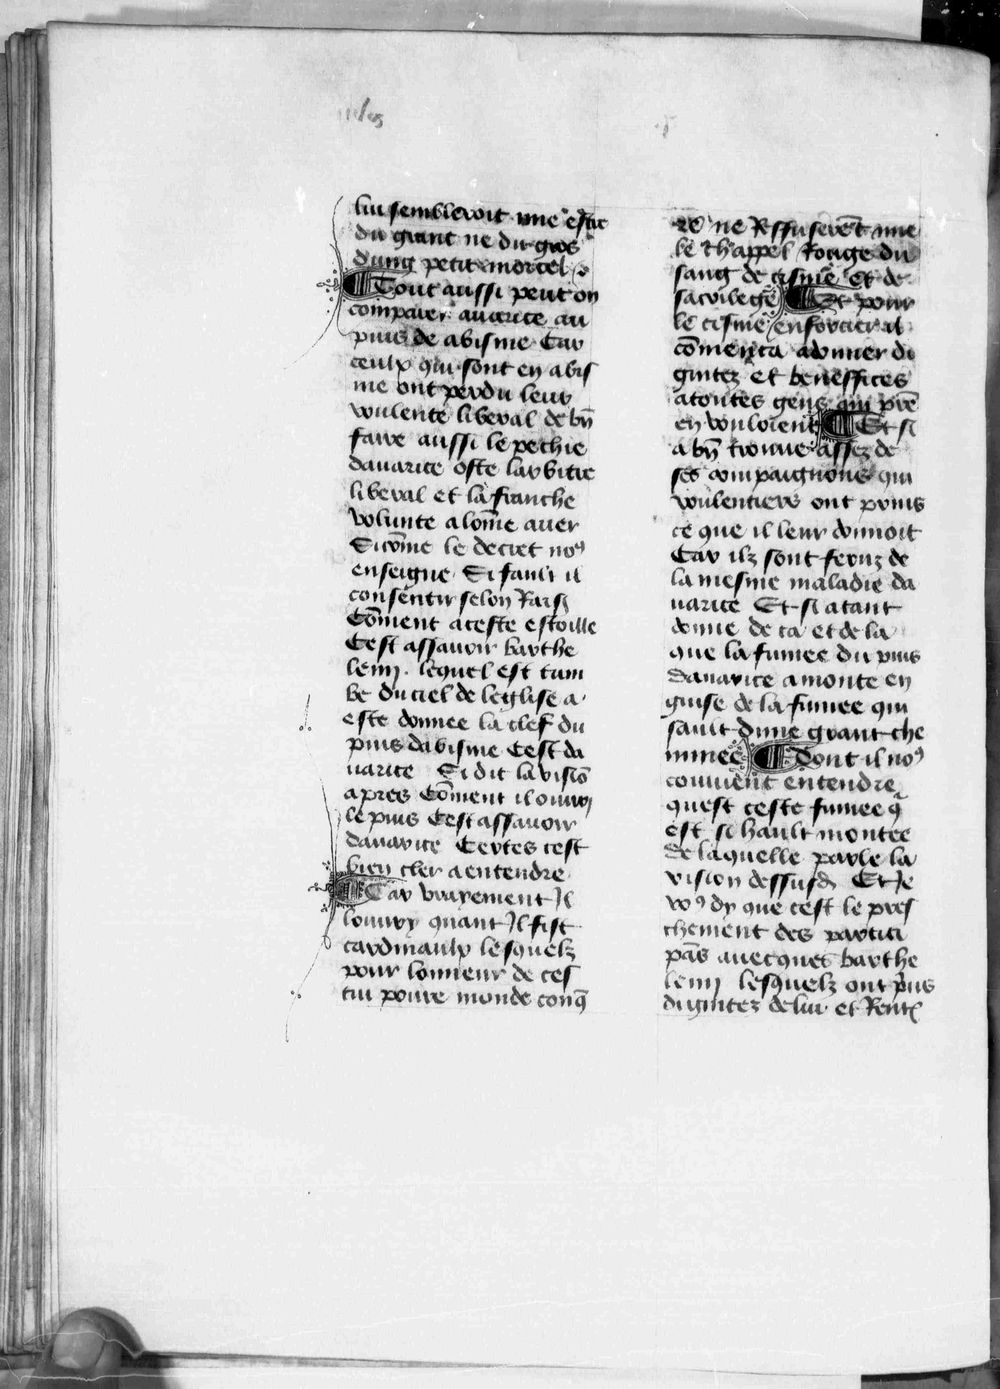 lui sembleroit une estre
du grant ne du gros
dung petit morcel
Tout aussi peut on
comparer avarice au
puis de abisme Car
ceulx qui sont en abis
me ont perdu leur
voulente liberal de bn̄
faire aussi le pechie
davarice oste larbitre
liberal et la franche
volunte a lom̄e aver
Sicōme le decret noꝰ
enseigne Si fault il
consentir selon Raisō
Cōment a ceste estoille
Cest assavoir barthe
lemj. lequel est tum
be du ciel de leglise a
este donnee la clef du
puis dabisme Cest da
varice Si dit la visiō
apres Cōment il ouvrj
le puis Cest assavoir
davarice Certes cest
bien cler a entendre
Car vrayement Jl
louvry quant Jl fist
cardinaulx lesquelz
pour lonneur de ces
tui povre monde conq̄
re ne Reffuserēt mie
le chappel Rouge du
sang de cisme et de
sacrilege Et pour
le cisme enforcier il
cōmenca a donner di
gnitez et beneffices
a toutes gens qui prē
en vouloient Et si
a bn̄ trouve assez de
ses compaignons qui
voulentiers ont prins
ce que il leur donnoit
Car ilz sont feruz de
la mesme maladie da
varice Et si a tant
donne de ca et de la
que la fumee du puis
davarice a monte en
guise de la fumee qui
sault dune grant che
minee Dont il noꝰ
convient entendre
quest ceste fumee q̄
est si hault montee
de laquelle parle la
vision dessusd. Et Je
voꝰ dy que cest le pres
chement des partici
pās avecques barthe
lemj lesquelz ont prīs
dignitez de lui et Rent